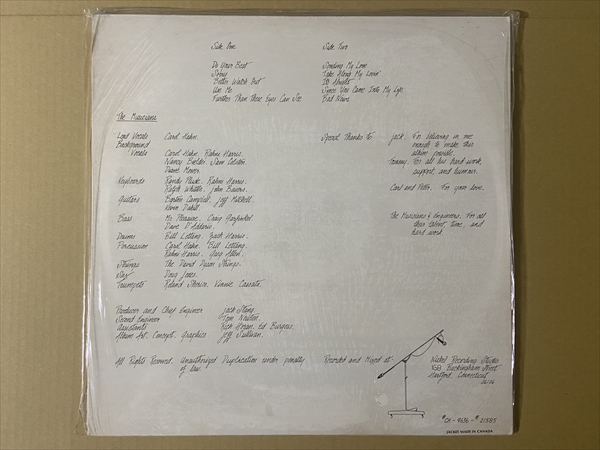 Side One
Do Your Best
Sorry
Better Watch Out
Use Me
Further Than These Eyes Can See
Side Two
Sending My Love
Take Along My Lovin'
It's Alright
Since You Came Into My Life
Bad News
The Musicians
Lead Vocals Carol Hahn.
Background
Vocals Carol Hahn, Rahni Harris,
Nancy Bielder, Sam Colston,
Diane Mower.
Keyboards Randy Rahni Harris,
Ralph Whittle, John Bowers.
Guitars Borton Campbell, Jeff Mitchell,
Kevin Dahill.
Bass Mr. Pleasure, Craig
Dave D'Addario.
Drums Bill Lotting, Zack Harris.
Percussion Carol Hahn, Bill Lotting,
Rahni Harris, Greg Allen.
Strings The David Dyson Strings.
Sax Doug Jones.
Trumpets Roland Vinnie
Special Thanks to Jack, For believing in me
enough to make this
album possible.
Tommy, For all his hard work,
support, and humour.
Carl and Peter, For your love.
The Musicians & Engineers, For all
their talent, time, and
hard work.
Producer and Chief Engineer Jack Stang
Second Engineer Tom
Assistants Rick Ed Burgess,
Album Art, Concept, Graphics Jeff Sullivan.
All Rights Reserved. Unauthorized Duplication under penalty
of law.
Recorded and Mixed at-
Nickel Recording Studio
158 Buckingham Street
Hartford, Connecticut
06106
*CH-9636-*21585
JACKET MADE IN CANADA